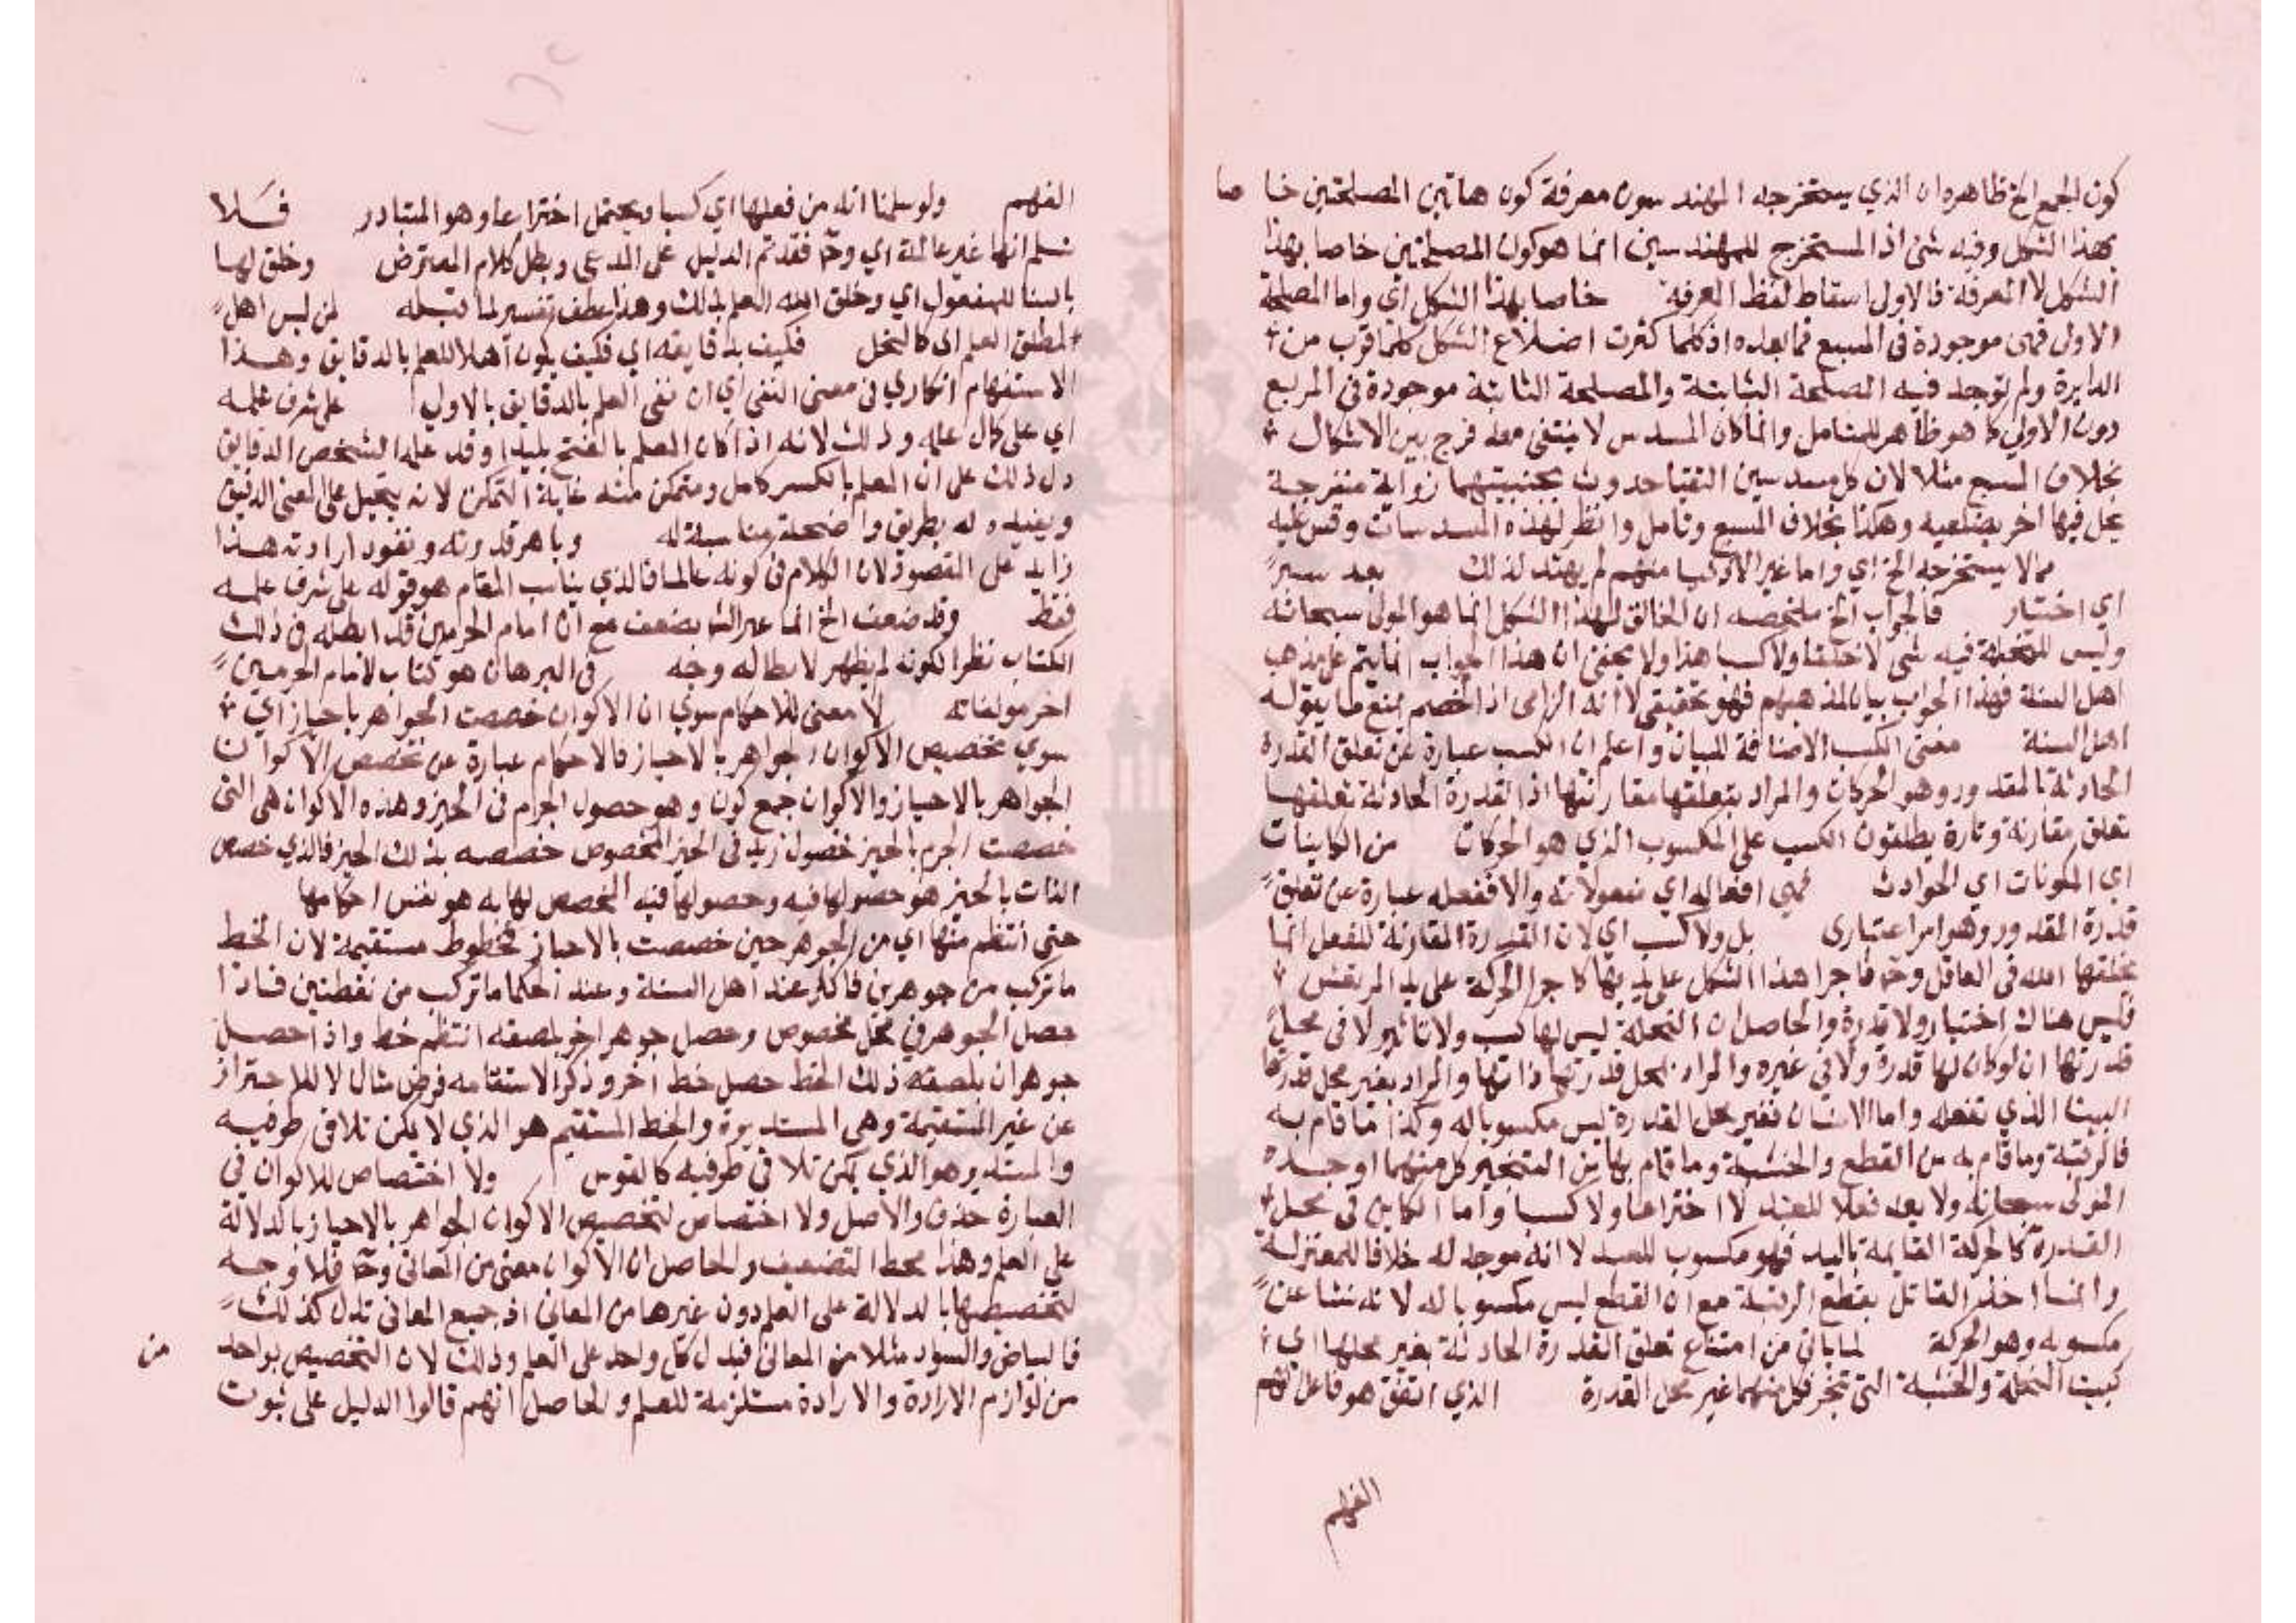 كون الجمع الخ ظاهره ان الذي يستخرجه المهندسون معرفة كون هاتين المصلحتين خاصا
بهذا الشكل وفيه شئ اذ المستخرج للمهندسين انما هو كون المصلحتين خاصا بهذا
الشكل لا المعرفة فالاول اسقاط لفظ المعرفة خاصا بهذا الشكل اي واما المصلحة
الاولى فهى موجودة فى المسبع فما بعده اذ كلما كثرت اضلاع الشكل كلما قرب من
الدايرة ولم توجد فيه المصلحة الثانية والمصلحة الثانية موجودة فى المربع
دون الاولى كما هو ظاهر للمتامل وانما كان المسدس لا ينتفى معه فرج بين الاشكال
بخلاف المسبع مثلا لان كل مسدسين التقيا حدوث بجنبيتهما زواية منفرجة
يحل فيها اخر بضلعيه وهكذا بخلاف المسبع وتامل وانظر لهذه المسدسات وقس عليه
مما لا يستخرجه الخ اي واما غير الاذكيا منهم لم يهتد لذلك بعد سبر
اي اختبار فالجواب الخ ملخصه ان الخالق لهذا الشكل انما هو المولى سبحانه
وليس للنحلة فيه شئ لا خلقا ولا كسبا هذا ولا يخفى ان هذا الجواب انما يتم على مذهب
اهل السنة فهذا الجواب بيان لمذهبهم فهو تحقيقى لا انه الزامى اذ الخصم يمنع ما يقوله
اهل السنة معنى الكسب الاضافة للبيان واعلم ان الكسب عبارة عن تعلق القدرة
الحادثة بالمقدور وهو الحركات والمراد بتعلقها مقارنتها اذ القدرة الحادثة تعلقها
تعلق مقارنة وتارة يطلقون الكسب على المكسوب الذي هو الحركات من الكاينات
اي المكونات اي الحوادث فهي افعاله اي مفعولاته والا ففعله عبارة عن تعلق
قدرة المقدور وهو امر اعتبارى بل ولا كسب اي لان القدرة المقارنة للفعل انما
يخلقها الله فى العاقل وح فاجرا هذا الشكل على يديها كاجرا الحركة على يد المرتعش
فليس هناك اختيار ولا قدرة والحاصل ان النحلة ليس لها كسب ولا تاثير لا فى محل
قدرتها ان لو كان لها قدرة ولا فى غيره والمراد بمحل قدرتها ذاتها والمراد بغير محل قدرتها
البيت الذي تفعله واما الانسان فغير محل القدرة ليس مكسوبا له وكذا ما قام به
فالرقبة وما قام به من القطع والخشبة وما قام بها من التنجير كل منهما اوجده
المولى سبحانه ولا يعد فعلا للعبد لا اختراعا ولا كسبا واما الكاين فى محل
القدرة كالحركة القايمة باليد فهو مكسوب للعبد لا انه موجد له خلافا للمعتزلة
وانما اخذ القاتل بقطع الرقبة مع ان القطع ليس مكسوبا له لانه نشا عن
مكسوبه وهو الحركة لما ياتى من امتناع تعلق القدرة الحادثة بغير محلها اي
كبيت النحلة والخشبة التى تنجر فكل منهما غير محل القدرة الذي اتفق هو فاعل الفهم
الفهم
الفهم ولو سلمنا انه من فعلها اي كسبا ويحتمل اختراعا وهو المتبادر فلا
نسلم انها غير عالمة اي وح فقد تم الدليل على المدعى وبطل كلام المعترض وخلق لها
بالبنا للمفعول اي وخلق الله العلم لذلك وهذا عطف تفسير لما قبله لمن ليس اهل
لمطلق العلم اى كالنحل فكيف بدقايقه اي فكيف يكون اهلا للعلم بالدقايق وهذا
الاستفهام انكاري فى معنى النفى اي ان نفى العلم بالدقايق بالاولى على شرف علمه
اي على كمال علمه وذلك لانه اذا كان المعلم بالفتح بليدا وقد علم الشخص الدقايق
دل ذلك على ان المعلم بالكسر كامل ومتمكن منه غاية التمكن لانه يتحيل على المعنى الدقيق
ويفيده له بطريق واضحة مناسبة له وباهر قدرته ونفوذ ارادته هذا
زايد على المقصود لان الكلام فى كونه عالما فالذي يناسب المقام هو قوله على شرف علمه
فقط وقد ضعف الخ انما عبر الش بضعف مع ان امام الحرمين قد ابطله فى ذلك
الكتاب نظرا لكونه لم يظهر لابطاله وجه فى البرهان هو كتاب لامام الحرمين
اخر مولفاته لا معنى للاحكام سوي ان الاكوان خصصت الجواهر باحياز اي
سوي تخصيص الاكوان الجواهر بالاحياز فالاحكام عبارة عن تخصص الاكوان
الجواهر بالاحياز والاكوان جمع كون وهو حصول الجرم فى الحيز وهذه الاكوان هى التى
خصصت الجرم بالحيز فحصول زيد فى الحيز المخصوص خصصه بذلك الحيز فالذي خصص
الذات بالحيز هو حصولها فيه وحصولها فيه المخصص لها به هو نفس احكامها
حتى انتظم منها اي من الجوهر حين خصصت بالاحياز خطوط مستقيمة لان الخط
ما تركب من جوهرين فاكثر عند اهل السنة وعند الحكما ما تركب من نقطتين فاذا
حصل الجوهر في محل مخصوص وحصل جوهر اخر بلصقه انتظم خط واذا حصل
جوهران بلصقه ذلك الخط حصل خط اخر وذكر الاستقامه فرض مثال لا للاحتراز
عن غير المستقيمة وهى المستديرة والخط المستقيم هو الذي لا يمكن تلاقى طرفيه
والمستدير هو الذي يمكن تلاقى طرفيه كالقوس ولا اختصاص للاكوان فى
العبارة حذف والاصل ولا اختصاص لتخصيص الاكوان الجواهر بالاحياز بالدلالة
على العلم وهذا محط التضعيف والحاصل ان الاكوان معنى من المعانى وح فلا وجه
لتخصيصها بالدلالة على العلم دون غيرها من المعانى اذ جميع المعانى تدل كذلك
فالبياض والسواد مثلا من المعانى فيدل كل واحد على العلم وذلك لان التخصيص بواحد من
من لوازم الارادة والارادة مستلزمة للعلم والحاصل انهم قالوا الدليل على ثبوت